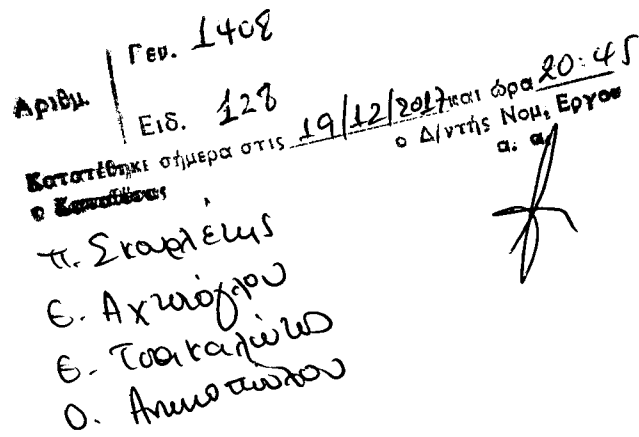 Αριθμ.
Γεν. 1408
Ειδ. 128
Κατατέθηκε σήμερα στις 19/12/2017 και ώρα 20:45
ο Δ/ντής Νομ. Εργου
α. α.
ο
Π. Σκουρλέτης
Ε. Αχτσιόγλου
Ε. Τσακαλώτος